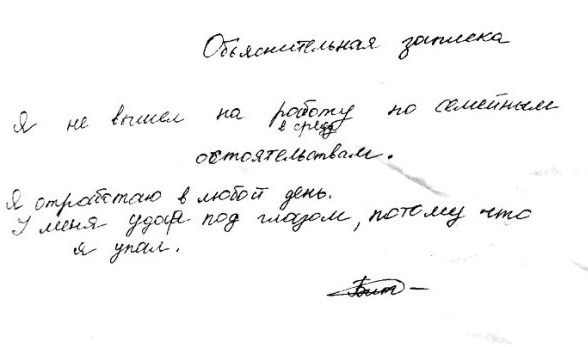 Объяснительная записка
Я не вышел на работу по семейным
в среду
обстоятельствам.
Я отработаю в любой день.
У меня удар под глазом, потому что
я упал.